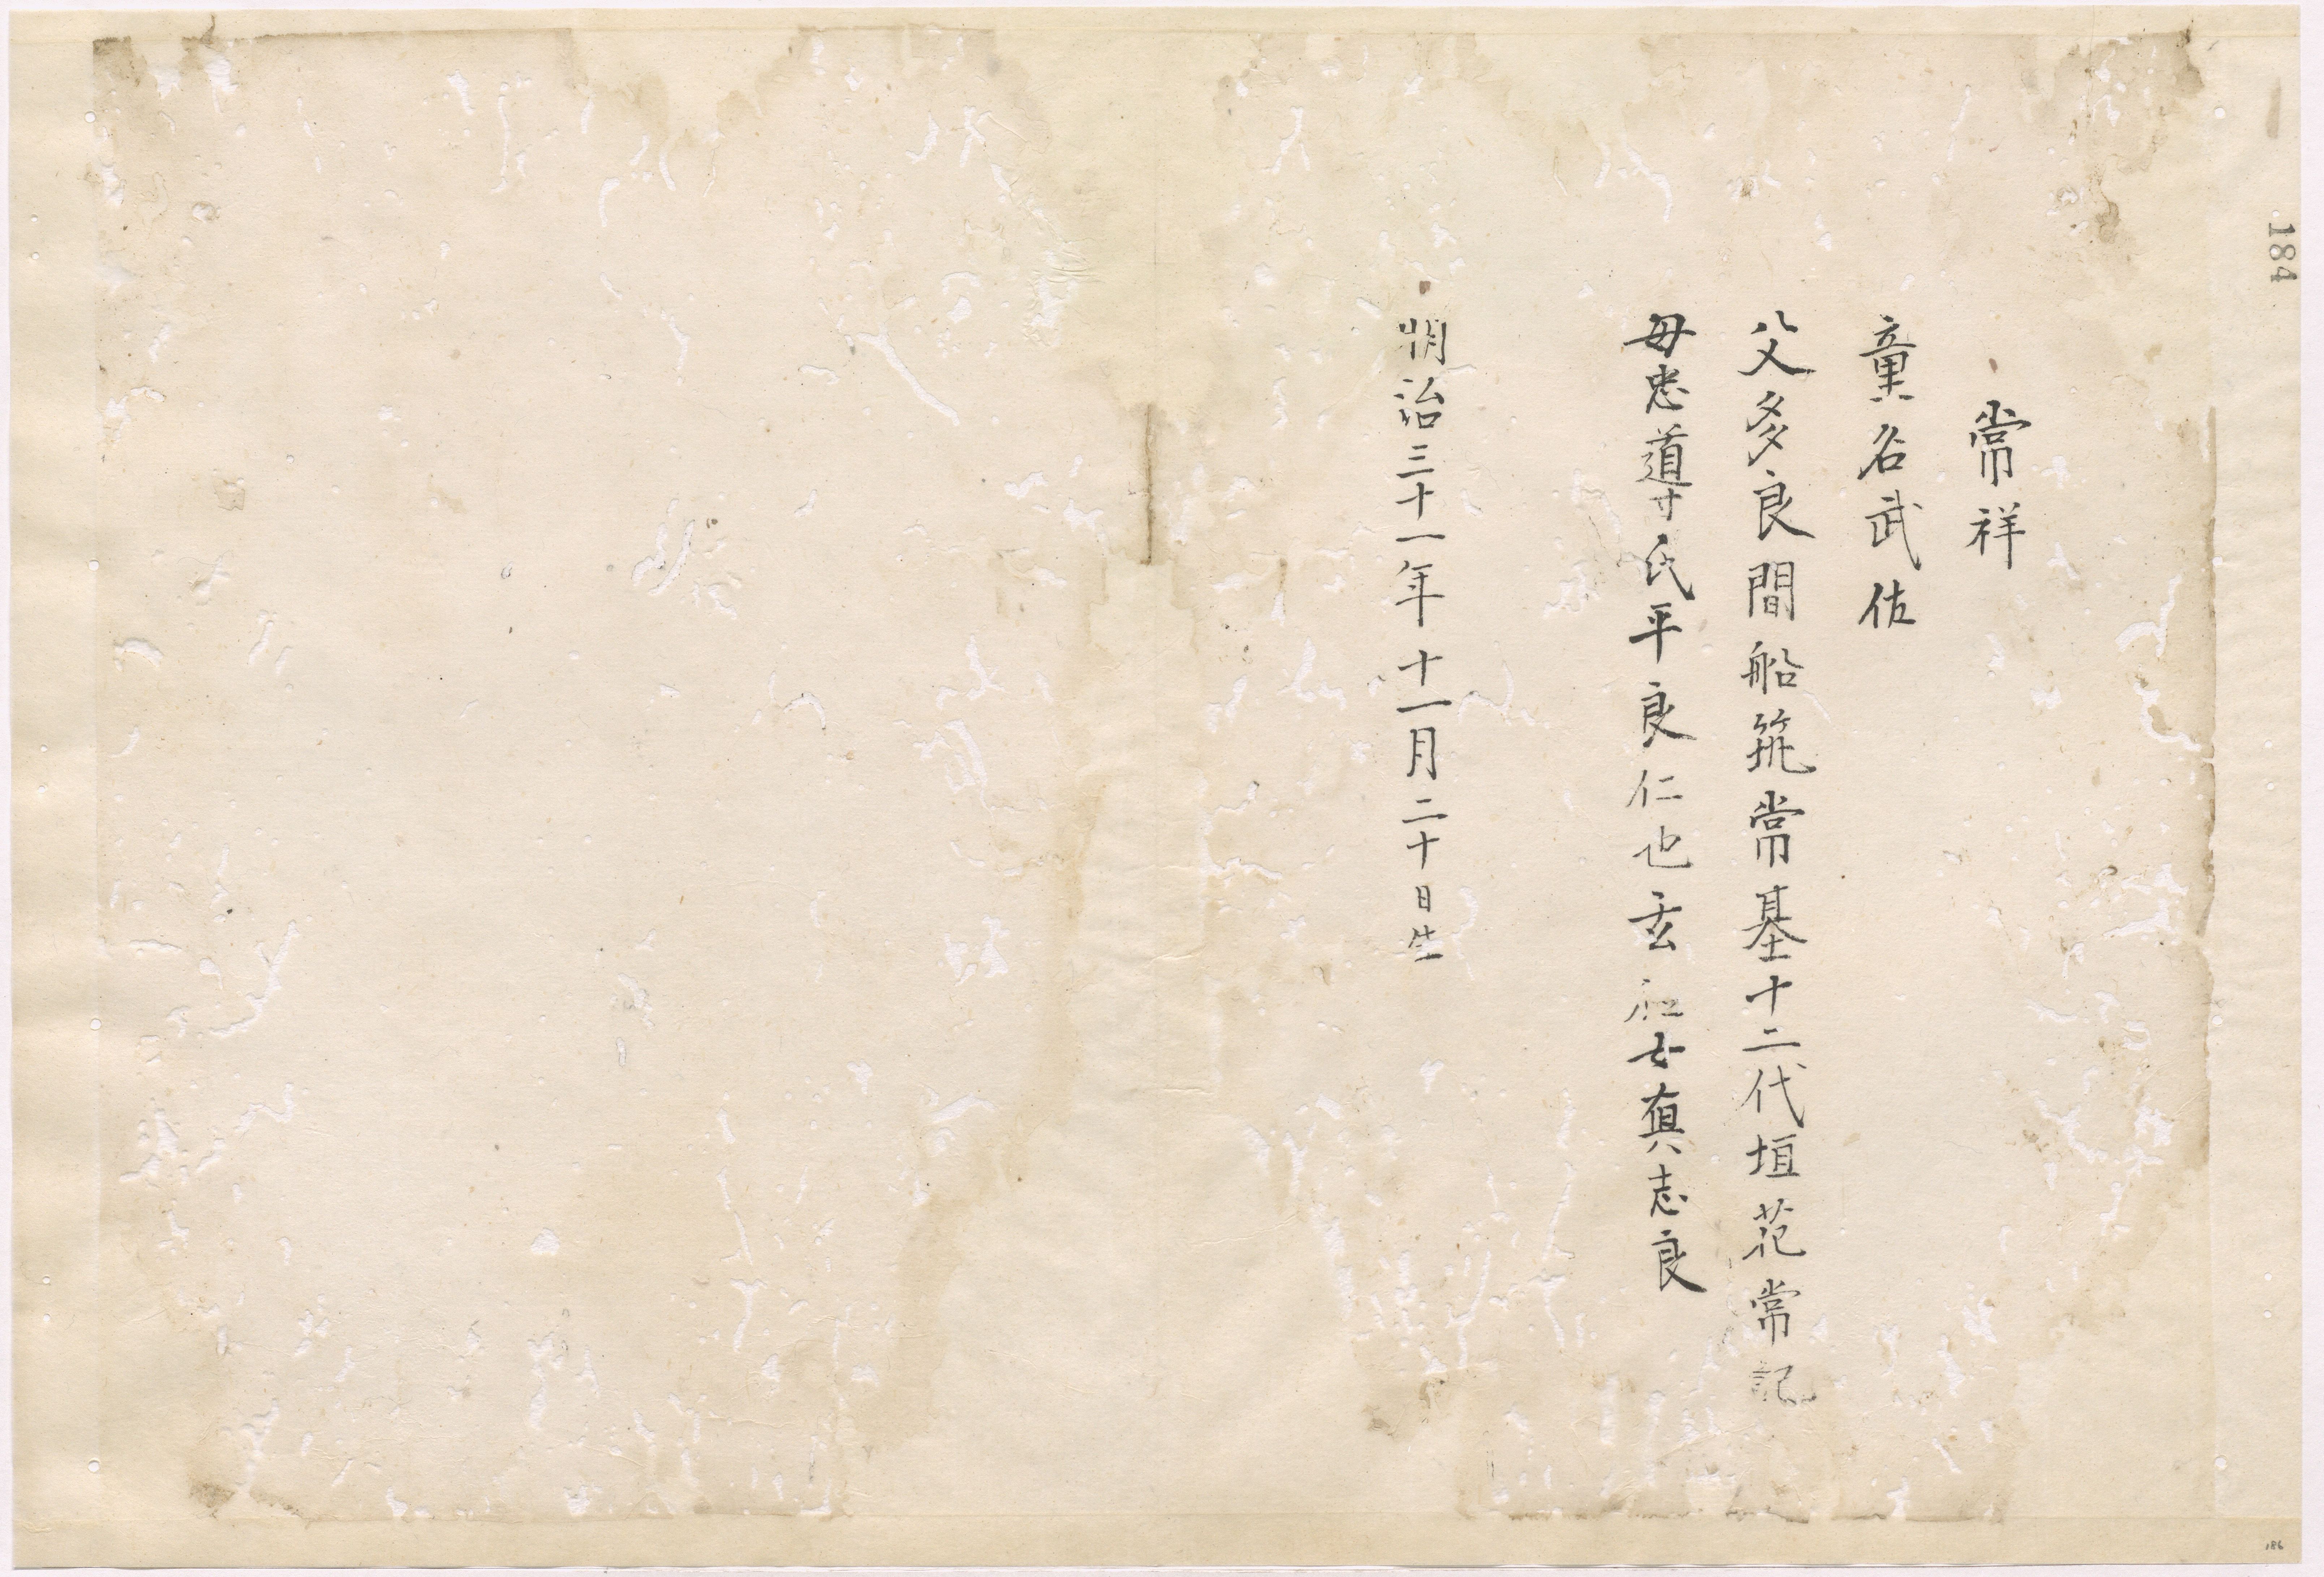 184
常祥
童名武佐
父多良間船筑常基十二代垣花常記
母忠導氏平良仁也玄 女真志良
明治三十一年十一月二十日生
186